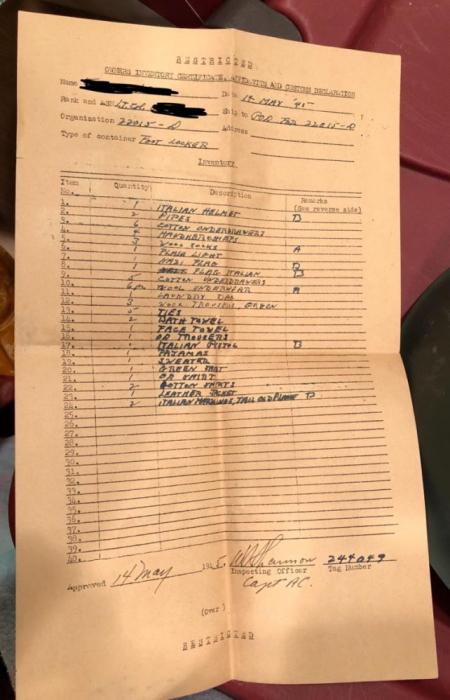 RESTRICTED
OWNERS INVENTORY CERTIFICATE, AND CUSTOMS DECLARATION
Name Date 14 MAY 45
Rank and ASN Lt. Col. Ship to POD 22015-D
Organization 22015-D Address
Type of container FOOT LOCKER
Inventory
Item No. Quantity Description Remarks (See reverse side)
1. 1 ITALIAN HELMET B
2. 2 PIPES
3. 6 COTTON UNDERDRAWERS
4. HANDKERCHIEFS
5. 3 WOOL SOCKS
6. 1 FLASH LIGHT A
7. 1 NAZI FLAG B
8. 1 FLAG ITALIAN B
9. COTTON UNDERDRAWERS
10. 6 WOOL UNDERWEAR A
11. 1 LAUNDRY BAG
12. 3 WOOL TROUSERS, GREEN
13. TIES
14. 2 BATH TOWEL
15. 1 FACE TOWEL
16. 1 OD TROUSERS
17. 1 ITALIAN PISTOL B
18. 1 PAJAMAS
19. 1 SWEATER
20. 1 GREEN
21. 1 OD SHIRT
22. 2 COTTON SHIRTS
23. 1 LEATHER JACKET
24. 2 ITALIAN MARKINGS, TAIL OLD PLANE B
25.
26.
27.
28.
29.
30.
31.
32.
33.
34.
35.
36.
37.
38.
39.
40.
Approved 14 May 1945. 244049
Inspecting Officer Tag Number
Capt AC.
(Over)
RESTRICTED